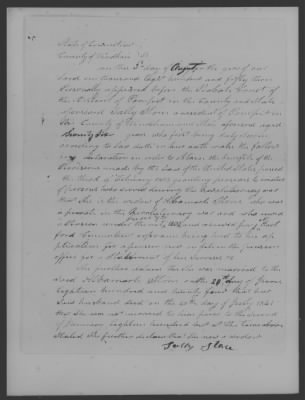 State of Connecticut
County of Windham
on this 3^d day of August in the year of our
Lord one thousand eight hundred and fifty three
Personally appeared before the Probate Court of
the District of Pomfret in the County and State
aforesaid Sally Stone a resident of Pomfret in
the County of Windham and State aforesaid aged
Seventy Six years who first being duly sworn
according to Law doth on her oath make the following
declaration in order to obtain the benefit of the
Provision made by the Law of the United States passed
the third of February 1853 granting pensions to widows
of persons who served during the Revolutionary war
that she is the widow of Stone who was
a private in the Revolutionary war and who was
a Pension under the
ford Connecticut reference being had to his ap-
plication for a pension now on file in the pension
office for a Statement of his Services &c
She further declares that she was married to the
said Stone on the 28th day of
Eighteen hundred and twenty four that her
Said husband died on the day of July 1841
that she was not married to him prior to the second
of January Eighteen hundred but at the time above
Stated She further declares that she now a widow
Sally Stone